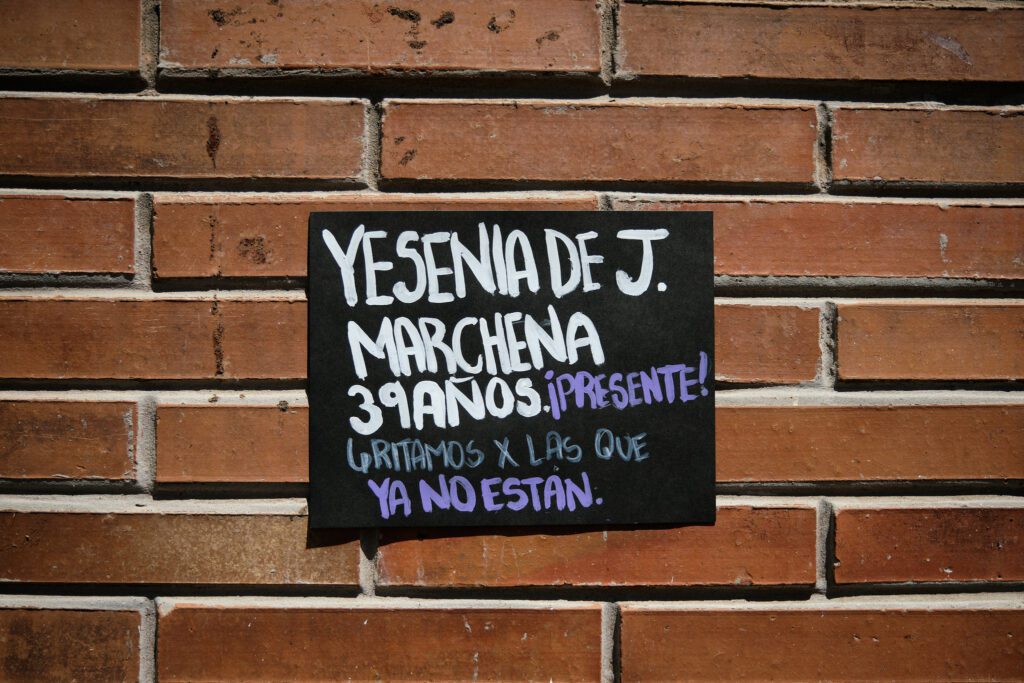 YESENIA DE J.
MARCHENA
39 AÑOS. ¡PRESENTE!
GRITAMOS X LAS QUE
YA NO ESTAN.